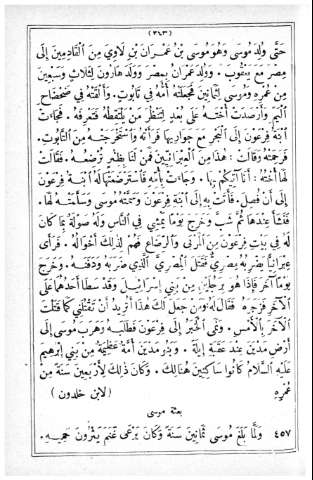 (٣٤٣)
حَتَّى وُلِدَ مُوسَى وَهُوَ مُوسَى بْنُ عِمْرَانَ بْنِ لَاوِي مِنَ ٱلْقَادِمِينَ إِلَى
مِصْرَ مَعَ يَعْقُوبَ . وَوُلِدَ عِمْرَانُ بِمِصْرَ وَوُلِدَ هَارُونُ لِثَلَاثٍ وَسَبْعِينَ
مِنْ عُمْرِهِ وَمُوسَى لِثَمَانِينَ فَجَعَلَتْهُ أُمُّهُ فِي تَابُوتٍ . وَأَلْقَتْهُ فِي ضَحْضَاحِ
ٱلْيَمِّ وَأَرْصَدَتْ أُخْتَهُ عَلَى بُعْدٍ لِتَنْظُرَ مَنْ يَلْتَقِطُهُ فَتَعْرِفَهُ . فَجَاءَتِ
ٱبْنَةُ فِرْعَوْنَ إِلَى ٱلْبَحْرِ مَعَ جَوَارِيهَا فَرَأَتْهُ وَٱسْتَخْرَجَتْهُ مِنَ ٱلتَّابُوتِ.
فَرَحِمَتْهُ وَقَالَتْ : هٰذَا مِنَ ٱلْعِبْرَانِيِّينَ فَمَنْ لَنَا بِظِئْرٍ تُرْضِعُهُ . فَقَالَتْ
لَهَا أُخْتُهُ : أَنَا آتِيكُمْ بِهَا . وَجَاءَتْ بِأُمِّهِ فَٱسْتَرْضَعَتْهَا لَهُ ٱبْنَةُ فِرْعَوْنَ
إِلَى أَنْ فُصِلَ . فَأَتَتْ بِهِ إِلَى ٱبْنَةِ فِرْعَوْنَ وَسَمَّتْهُ مُوسَى وَسَلَّمَتْهُ لَهَا.
فَنَشَأَ عِنْدَهَا ثُمَّ شَبَّ وَخَرَجَ يَوْمًا يَمْشِي فِي ٱلنَّاسِ وَلَهُ صَوْلَةٌ بِمَا كَانَ
لَهُ فِي بَيْتِ فِرْعَوْنَ مِنَ ٱلْمَرْبَى وَٱلرَّضَاعِ فَهُمْ لِذٰلِكَ أَخْوَالُهُ . فَرَأَى
عِبْرَانِيًّا يَضْرِبُهُ مِصْرِيٌّ فَقَتَلَ ٱلْمِصْرِيَّ ٱلَّذِي ضَرَبَهُ وَدَفَنَهُ . وَخَرَجَ
يَوْمًا آخَرَ فَإِذَا هُوَ بِرَجُلَيْنِ مِنْ بَنِي إِسْرَائِيلَ وَقَدْ سَطَا أَحَدُهُمَا عَلَى
ٱلْآخَرِ فَزَجَرَهُ فَقَالَ لَهُ وَمَنْ جَعَلَ لَكَ هٰذَا أَتُرِيدُ أَنْ تَقْتُلَنِي كَمَا قَتَلْتَ
ٱلْآخَرَ بِٱلْأَمْسِ . وَنَمَى ٱلْخَبَرُ إِلَى فِرْعَوْنَ فَطَلَبَهُ وَهَرَبَ مُوسَى إِلَى
أَرْضِ مَدْيَنَ عِنْدَ عَقَبَةِ إِيلَةَ . وَبَنُو مَدْيَنَ أُمَّةٌ عَظِيمَةٌ مِنْ بَنِي إِبْرٰهِيمَ
عَلَيْهِ ٱلسَّلَامُ كَانُوا سَاكِنِينَ هُنَالِكَ . وَكَانَ ذٰلِكَ لِأَرْبَعِينَ سَنَةً مِنْ
عُمْرِهِ (لابن خلدون)
بعثة موسى
٤٥٧ وَلَمَّا بَلَغَ مُوسَى ثَمَانِينَ سَنَةً وَكَانَ يَرْعَى غَنَمَ يَثْرُونَ حَمِيهِ.